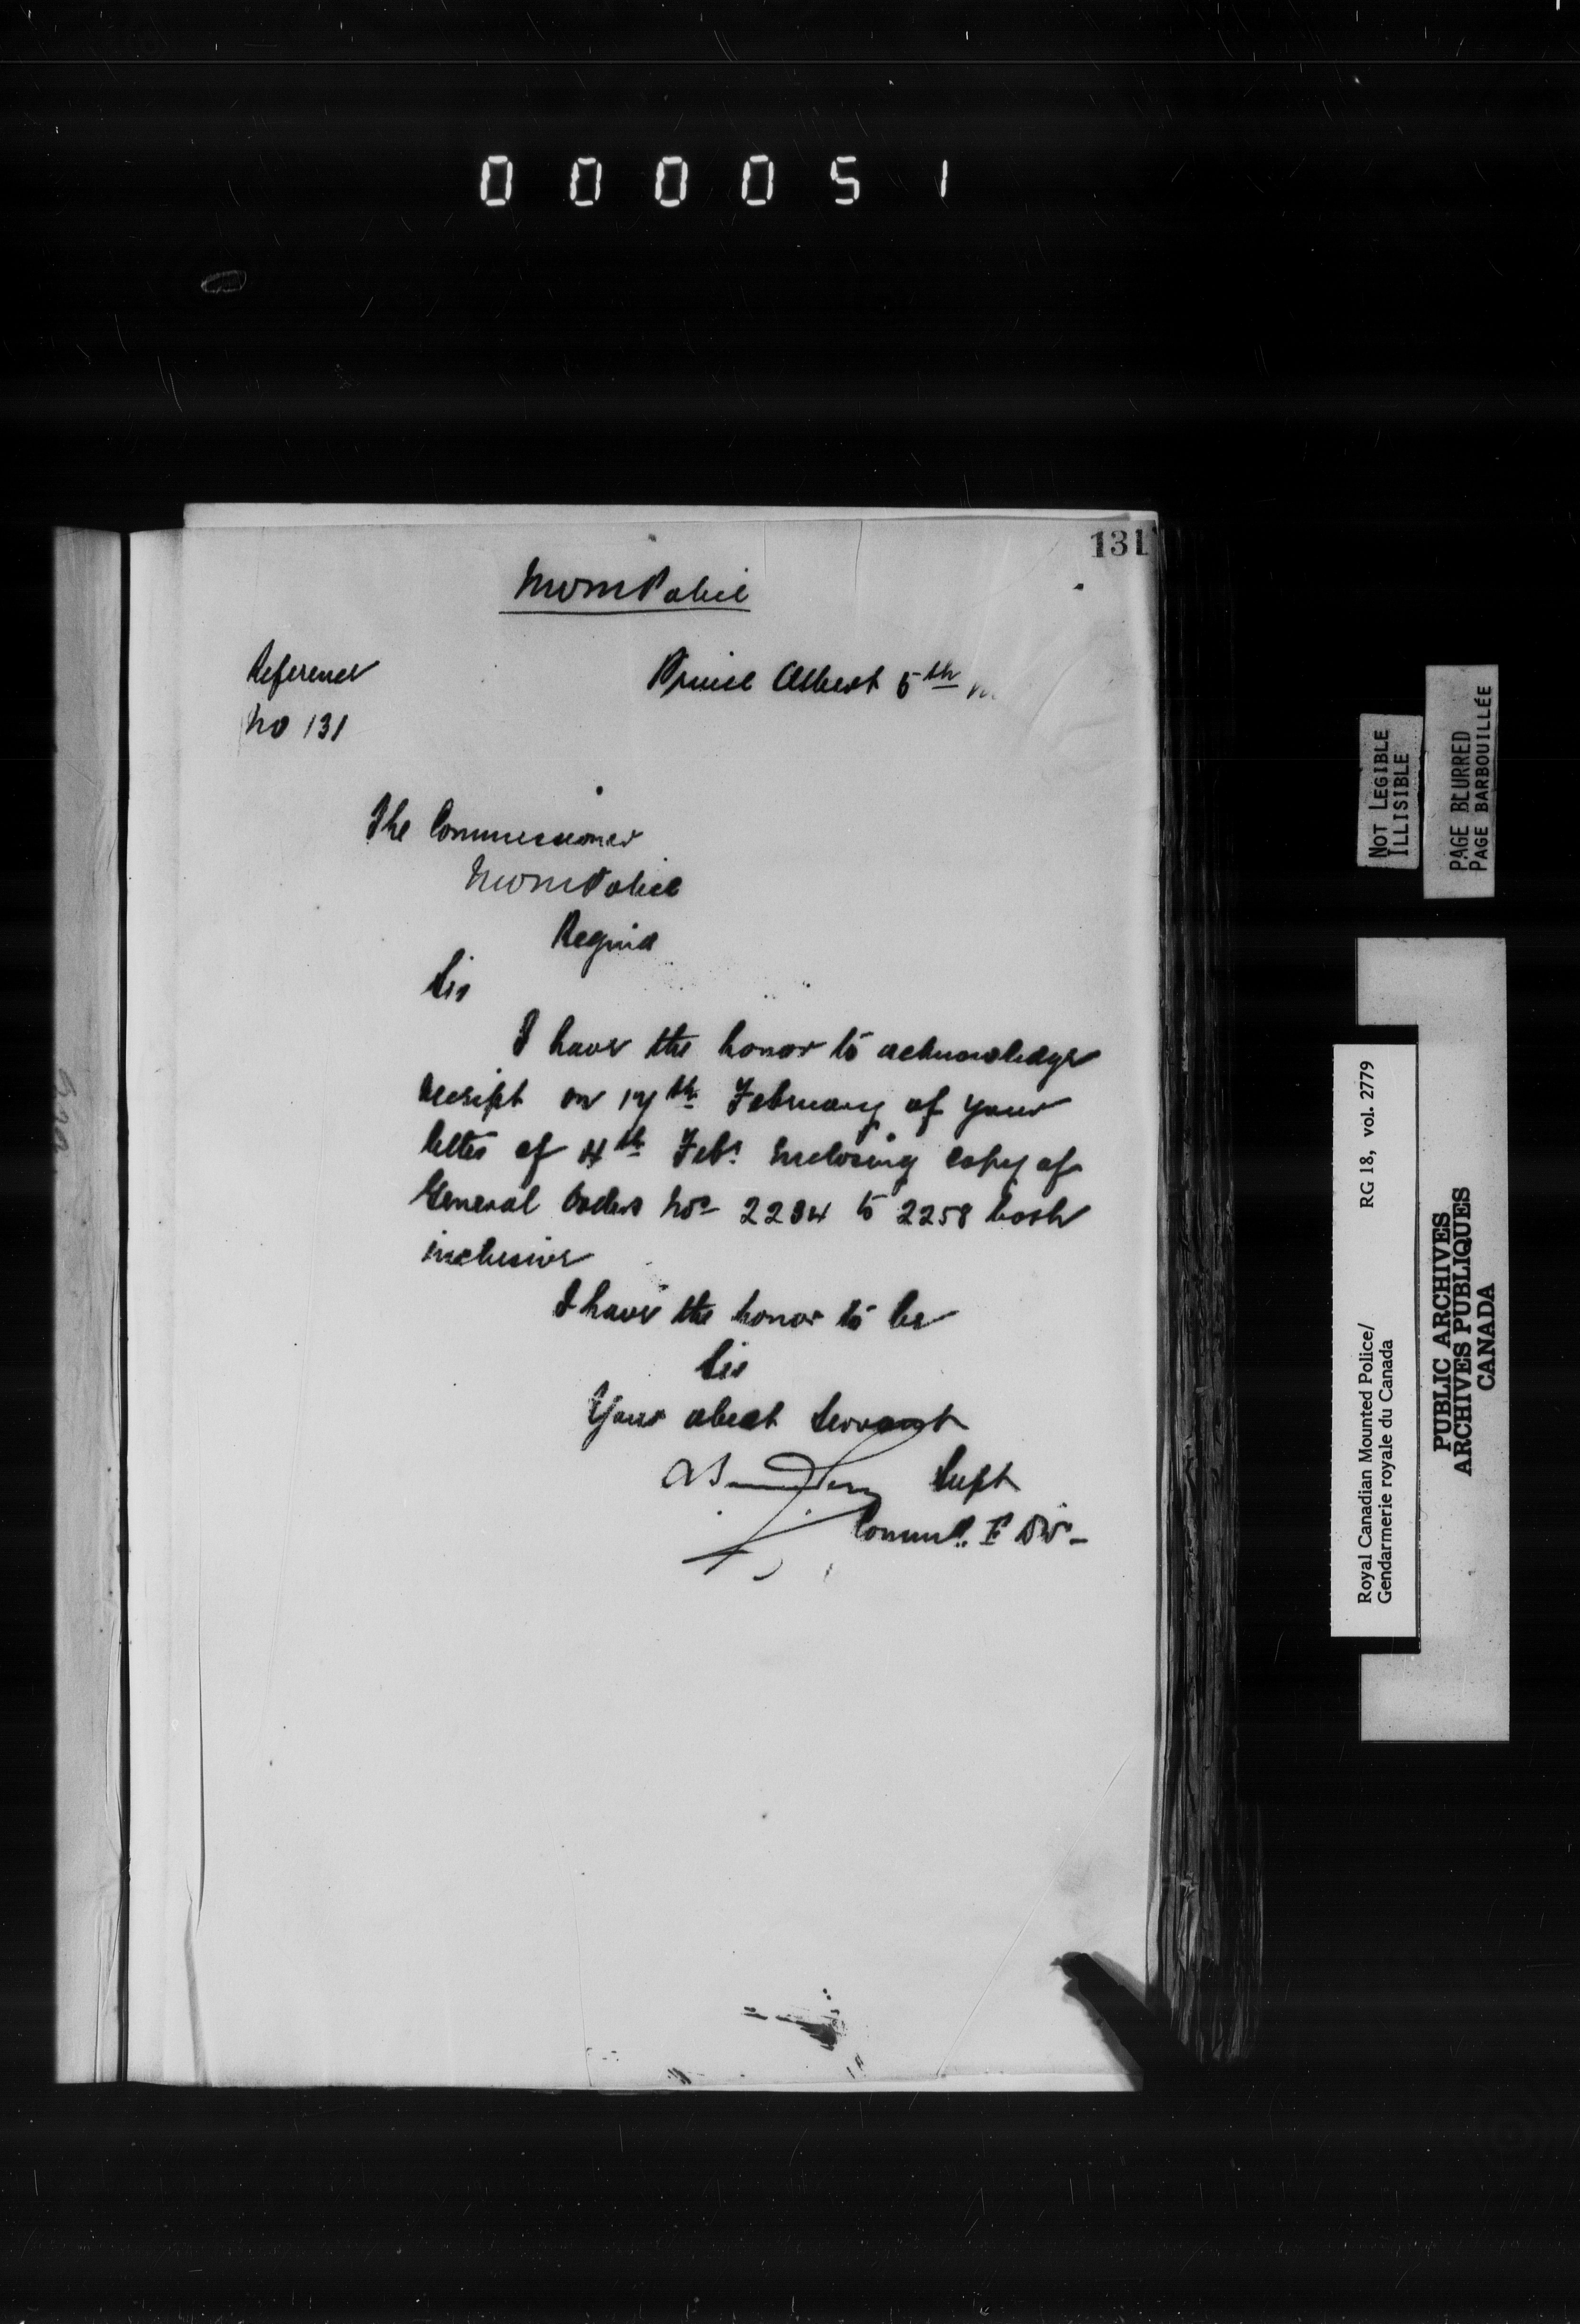 000051
131
NWMPolice
Reference
No 131
Prince Albert 5th
The Commissioner
NWMPolice
Regina
Sir
I have the honor to acknowledge
receipt on 17th February of your
letter of 4th Feby. enclosing copy of
General Orders Nos 2234 to 2258 both
inclusive
I have the honor to be
Sir
Your obedt Servant
Supt
Commd. F Div-
NOT LEGIBLE
ILLISIBLE
PAGE BLURRED
PAGE BARBOUILLÉE
Royal Canadian Mounted Police/ RG 18, vol. 2779
Gendarmerie royale du Canada
PUBLIC ARCHIVES
ARCHIVES PUBLIQUES
CANADA